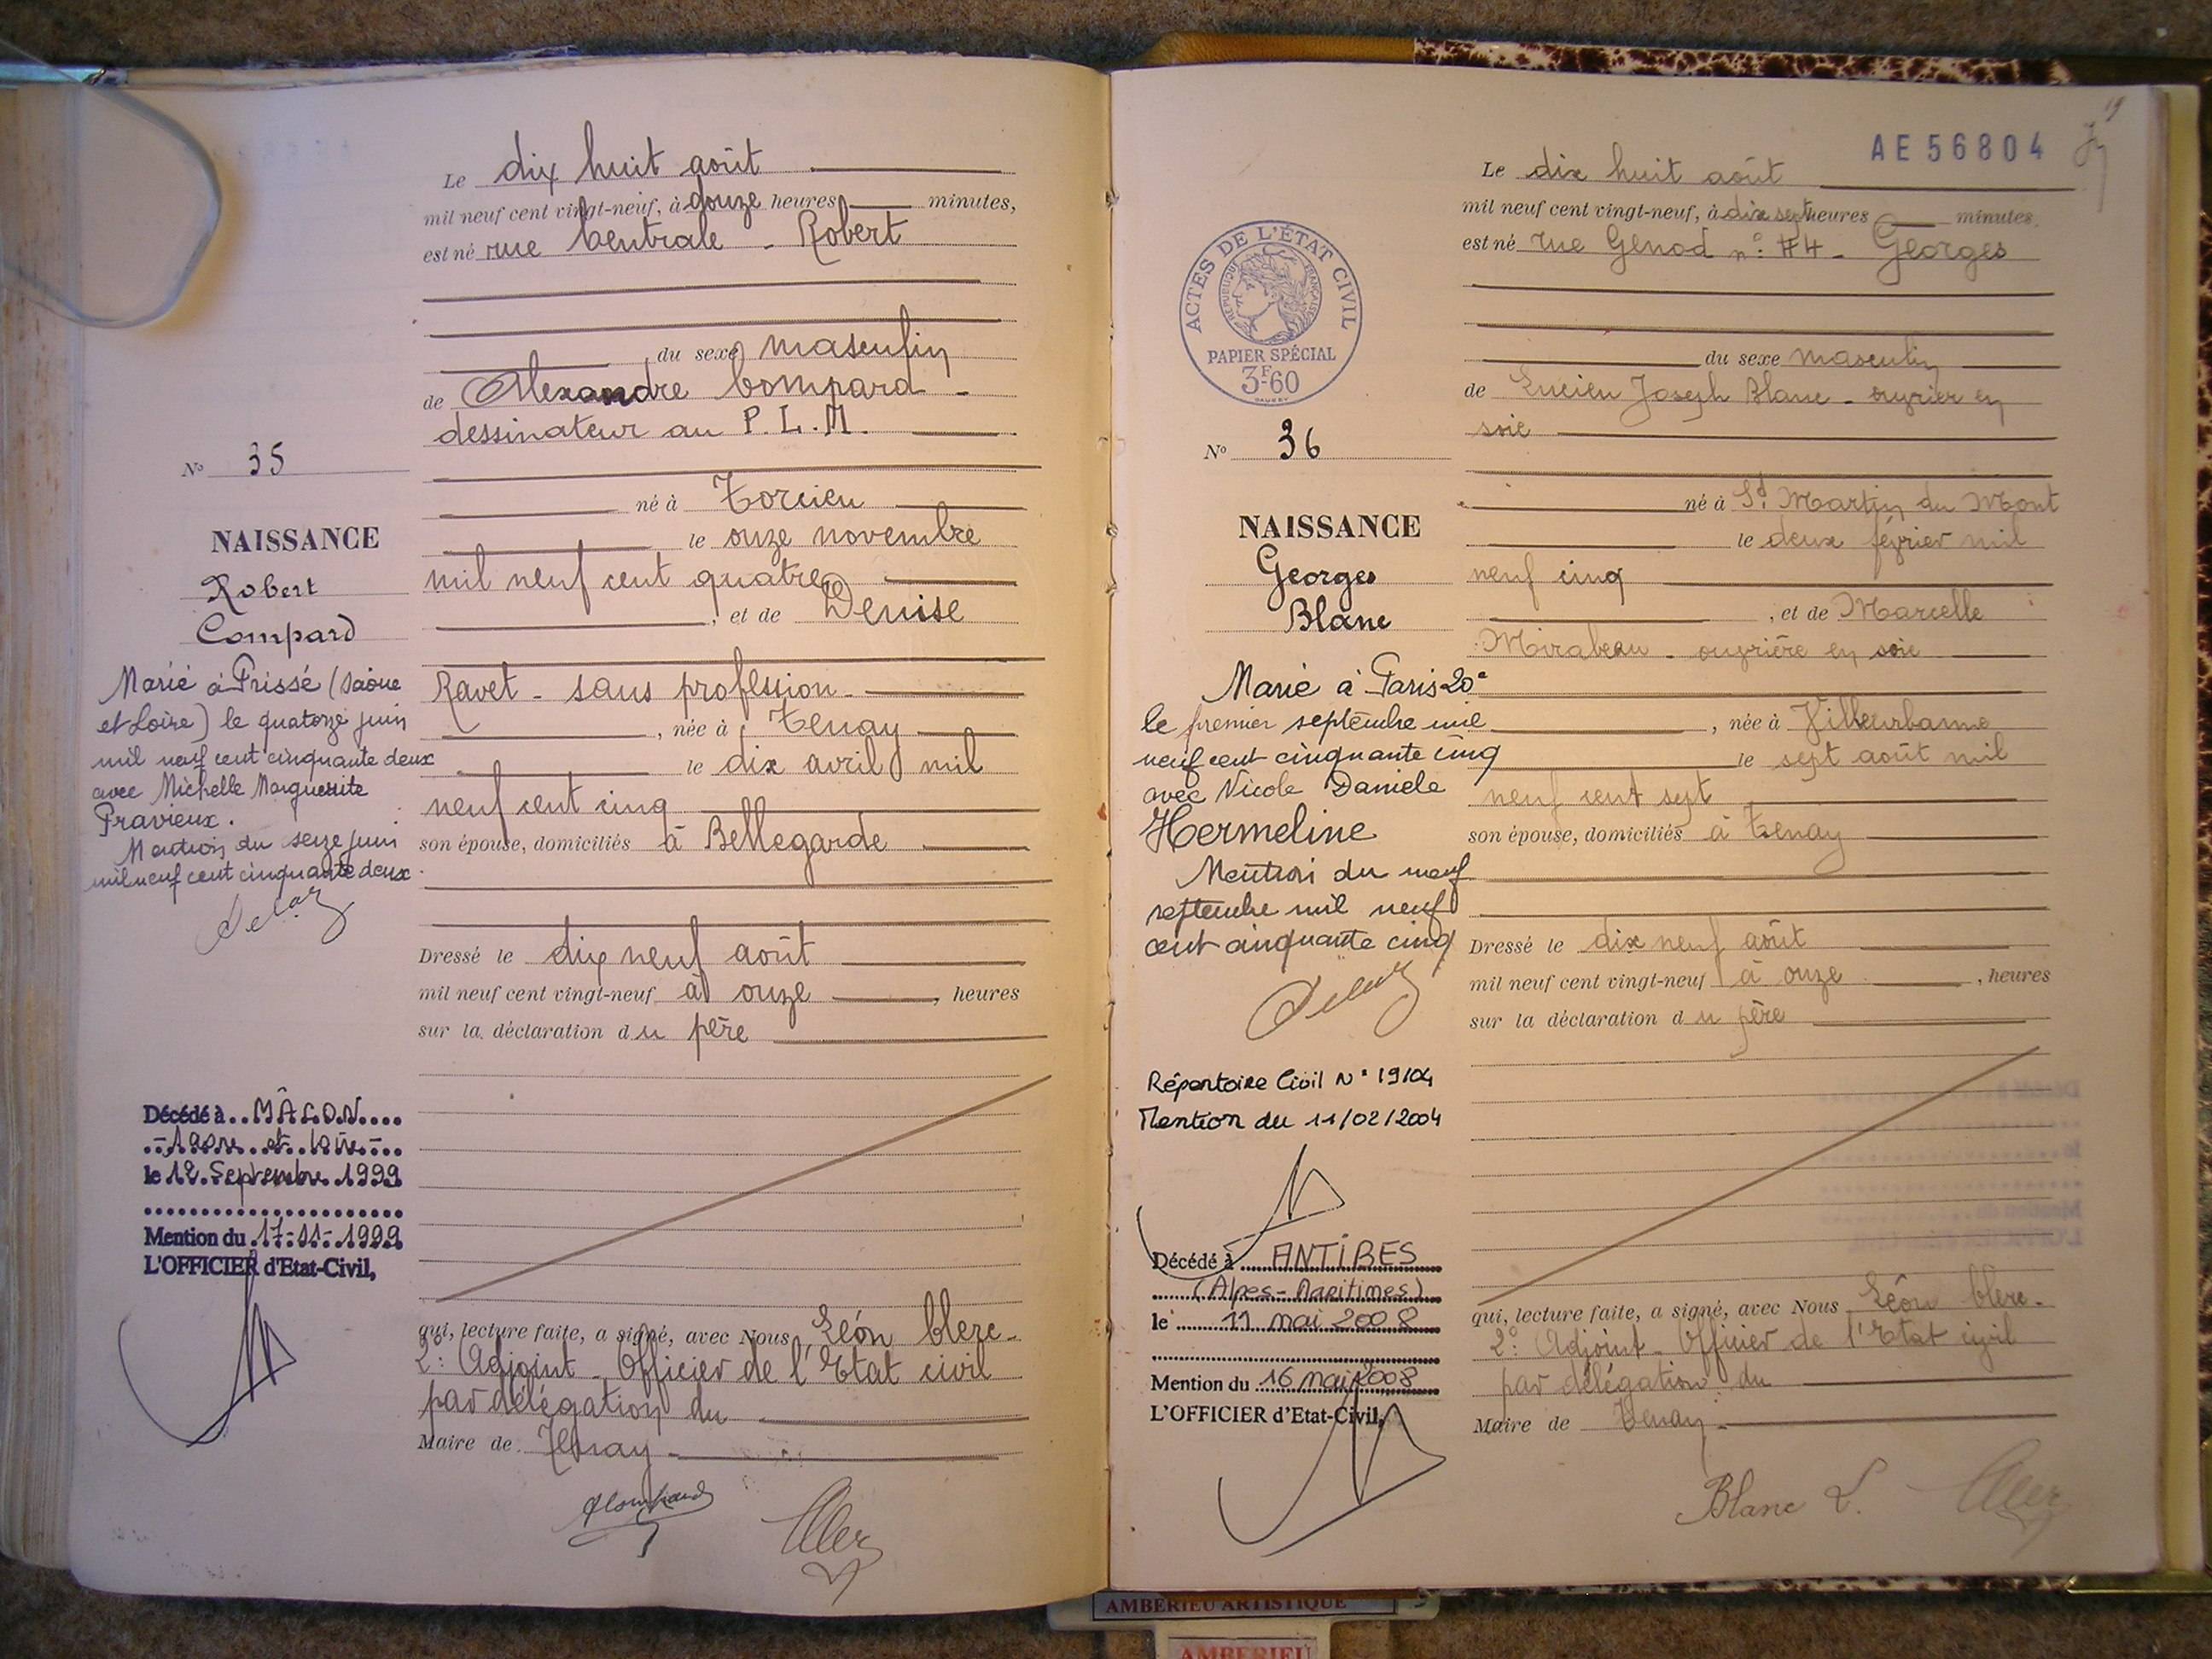 Le dix huit août
mil neuf cent vingt-neuf, à douze heures minutes,
est né rue Centrale - Robert
du sexe masculin
de Alexandre Compard -
dessinateur au P.L.M.
né à Torcieu
le onze novembre
mil neuf cent quatre
, et de Denise
Ravet - sans profession -
, née à Tenay
le dix avril mil
neuf cent cinq
son épouse, domiciliés à Bellegarde
Dressé le dix neuf août
mil neuf cent vingt-neuf à onze , heures
sur la déclaration du père
qui, lecture faite, a signé, avec Nous, Léon Clerc -
2e: Adjoint - Officier de l'Etat civil
par délégation du
Maire de Tenay -
No 35
NAISSANCE
Robert
Compard
Marié à Prissé (Saône
et Loire) le quatorze juin
mil neuf cent cinquante deux
avec Michelle Marguerite
Pravieux.
Mention du seize juin
mil neuf cent cinquante deux
Décédé à MÂCON
- Saône et Loire -
le 12 Septembre 1999
Mention du 17-11-1999
L'OFFICIER d'Etat-Civil,
19
AE 56804
Le dix huit août
mil neuf cent vingt-neuf, à dix sept heures minutes,
est né rue Genod n°: 74 - Georges
du sexe masculin
de Lucien Joseph Blanc - ouvrier en
soie
né à St Martin du Mont
le deux février mil
neuf cinq
, et de Marcelle
Mirabeau - ouvrière en soie
, née à Villeurbanne
le sept août mil
neuf cent sept
son épouse, domiciliés à Tenay
Dressé le dix neuf août
mil neuf cent vingt-neuf à onze , heures
sur la déclaration du père
qui, lecture faite, a signé, avec Nous Léon Clerc -
2e: Adjoint - Officier de l'Etat civil
par délégation du
Maire de Tenay -
Blanc L.
ACTES DE L'ÉTAT CIVIL
RÉPUBLIQUE FRANÇAISE
PAPIER SPÉCIAL
3F60
No 36
NAISSANCE
Georges
Blanc
Marié à Paris 20e
le premier septembre mil
neuf cent cinquante cinq
avec Nicole Danièle
Hermeline
Mention du neuf
septembre mil neuf
cent cinquante cinq
Répertoire Civil N° 19/04
Mention du 11/02/2004
Décédé à ANTIBES
(Alpes-Maritimes)
le 11 mai 2008
Mention du 16 mai 2008
L'OFFICIER d'Etat-Civil,
AMBERIEU ARTISTIQUE
AMBERIEU